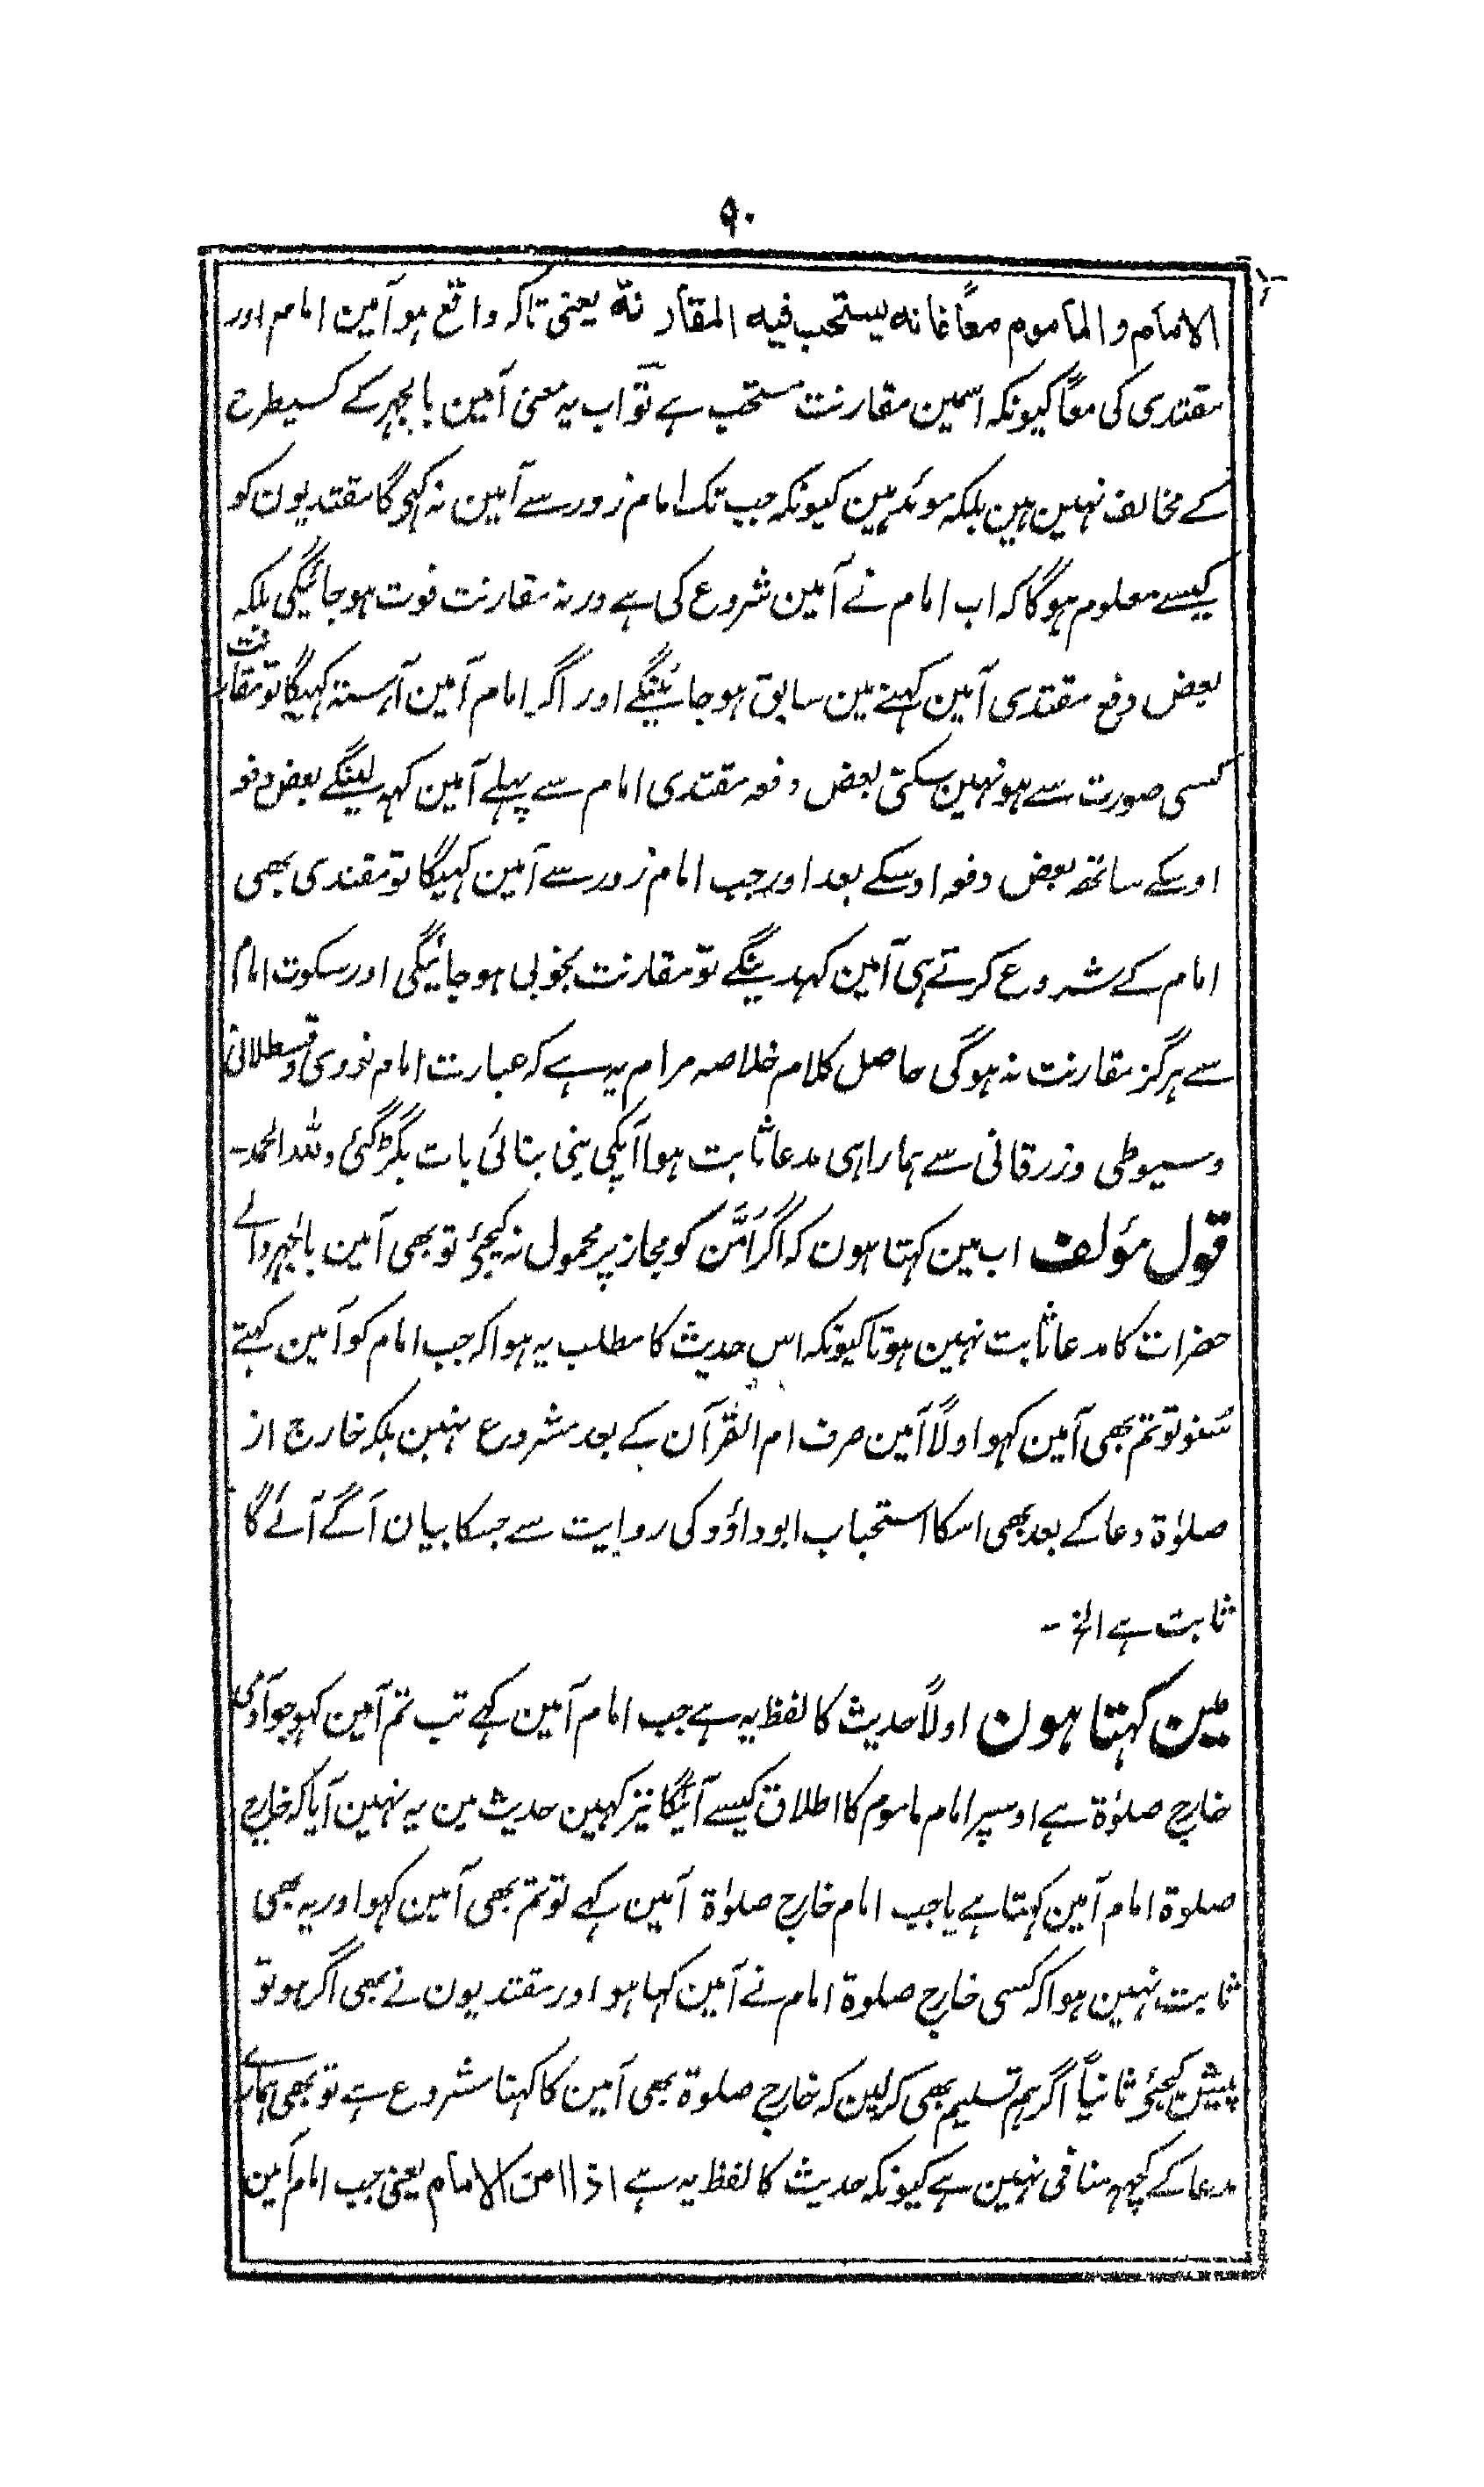 ٩٠
الامام والماموم معاً فانه يستحب فيه المقارنة یعنی تاکہ واقع ہو آمین امام اور
مقتدی کی معاً کیونکہ اسمین مقارنت مستحب ہے تو اب یہ معنی آمین بالجہر کے کسیطرح
کے مخالف نہین ہین بلکہ موئد ہین کیونکہ جب تک امام زور سے آمین نہ کہیگا مقتدیون کو
کیسے معلوم ہوگا کہ اب امام نے آمین شروع کی ہے ورنہ مقارنت فوت ہو جائیگی بلکہ
بعض دفع مقتدی آمین کہنے مین سابق ہو جائینگے اور اگر امام آمین آہستہ کہیگا تو مقارنت
کسی صورت سے ہو نہین سکتی بعض دفعہ مقتدی امام سے پہلے آمین کہہ لینگے بعض دفعہ
اوسکے ساتھ بعض دفعہ اوسکے بعد اور جب امام زور سے آمین کہیگا تو مقتدی بھی
امام کے شروع کرتے ہی آمین کہدینگے تو مقارنت بخوبی ہو جائیگی اور سکوت امام
سے ہرگز مقارنت نہ ہوگی حاصل کلام خلاصہ مرام یہ ہے کہ عبارت امام نووی و قسطلانی
و سیوطی و زرقانی سے ہمارا ہی مدعا ثابت ہوا آپکی بنی بنائی بات بگڑ گئی وللہ الحمد۔
قول مؤلف اب مین کہتا ہون کہ اگر اَمَّنَ کو مجاز پر محمول نہ کیجئے تو بھی آمین بالجہر والے
حضرات کا مدعا ثابت نہین ہوتا کیونکہ اس حدیث کا مطلب یہ ہوا کہ جب امام کو آمین کہتے
سُنو تو تم بھی آمین کہو اولاً آمین صرف ام القرآن کے بعد مشروع نہین بلکہ خارج از
صلوٰۃ دعا کے بعد بھی اسکا استحباب ابو داؤد کی روایت سے جسکا بیان آگے آئے گا
ثابت ہے الخ۔
مین کہتا ہون اولاً حدیث کا لفظ یہ ہے جب امام آمین کہے تب تم آمین کہو جو آدمی
خارج صلوٰۃ ہے اوسپر امام ماموم کا اطلاق کیسے آئیگا نیز کہین حدیث مین یہ نہین آیا کہ خارج
صلوۃ امام آمین کہتا ہے یا جب امام خارج صلوٰۃ آمین کہے تو تم بھی آمین کہو اور یہ بھی
ثابت نہین ہوا کہ کسی خارج صلوۃ امام نے آمین کہا ہو اور مقتدیون نے بھی اگر ہو تو
پیش کیجئے ثانیاً اگر ہم تسلیم بھی کر لین کہ خارج صلوۃ بھی آمین کا کہنا مشروع ہے تو بھی ہمارے
مدعا کے کچھ منافی نہین ہے کیونکہ حدیث کا لفظ یہ ہے اذا امن الامام یعنی جب امام آمین